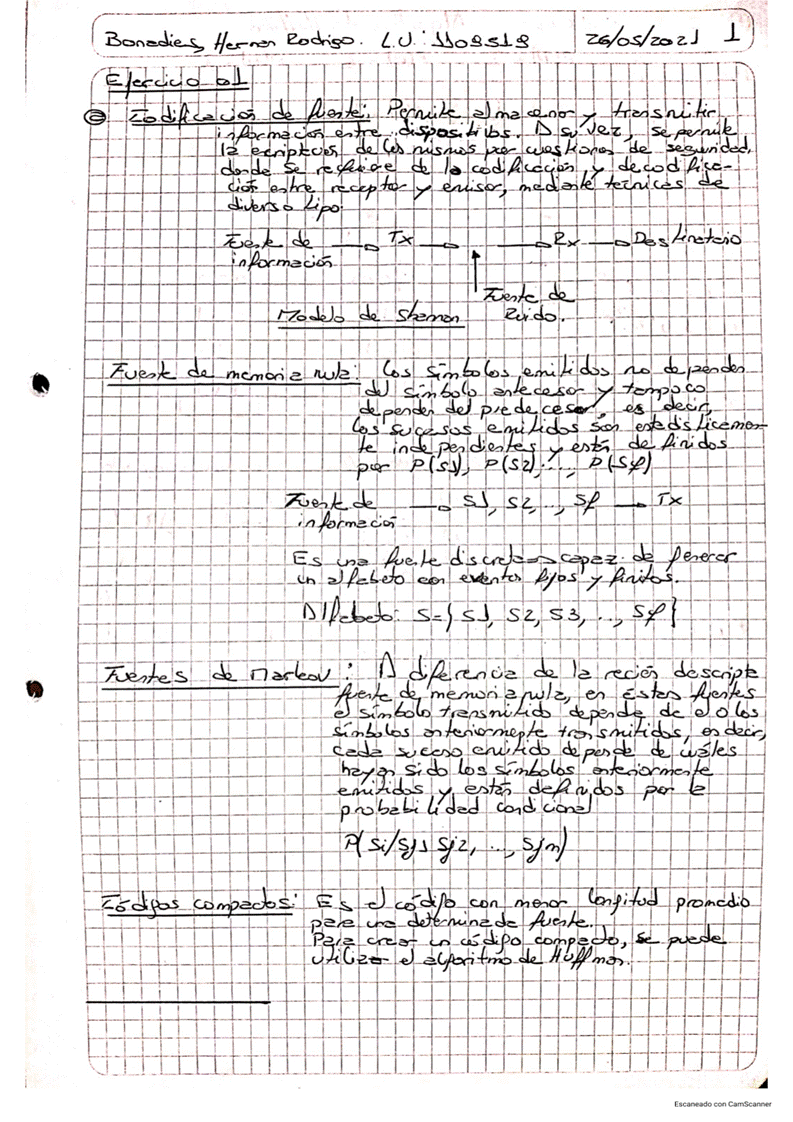 Bonadies, Hernan Rodrigo. L.U.: 1108519 26/05/2021 1
Ejercicio 01
a Codificación de fuente: Permite almacenar y transmitir
información entre dispositivos. A su vez, se permite
la encriptación de los mismos por cuestiones de seguridad,
donde se refiere de la codificación y decodifica-
ción entre receptor y emisor, mediante técnicas de
diverso tipo.
Fuente de Tx Rx Destinatario
información
Fuente de
Modelo de Shannon Ruido.
Fuente de memoria nula: Los símbolos emitidos no dependen
del símbolo antecesor y tampoco
dependen del predecesor, es decir,
los sucesos emitidos son estadísticamen-
te independientes y están definidos
por P(S1), P(S2), ..., P(Sq)
Fuente de S1, S2, .., Sq Tx
información
Es una fuente discreta capaz de generar
un alfabeto con eventos fijos y finitos.
Alfabeto: S={S1, S2, S3, .., Sq}
Fuentes de Markov: A diferencia de la recién descripta
fuente de memoria nula, en éstas fuentes
el símbolo transmitido depende de el o los
símbolos anteriormente transmitidos, es decir,
cada suceso emitido depende de cuáles
hayan sido los símbolos anteriormente
emitidos y están definidos por la
probabilidad condicional
P(Si/Sj1 Sj2, ..., Sjm)
Códigos compactos: Es el código con menor longitud promedio
para una determinada fuente.
Para crear un código compacto, se puede
utilizar el algoritmo de Huffman.
Escaneado con CamScanner